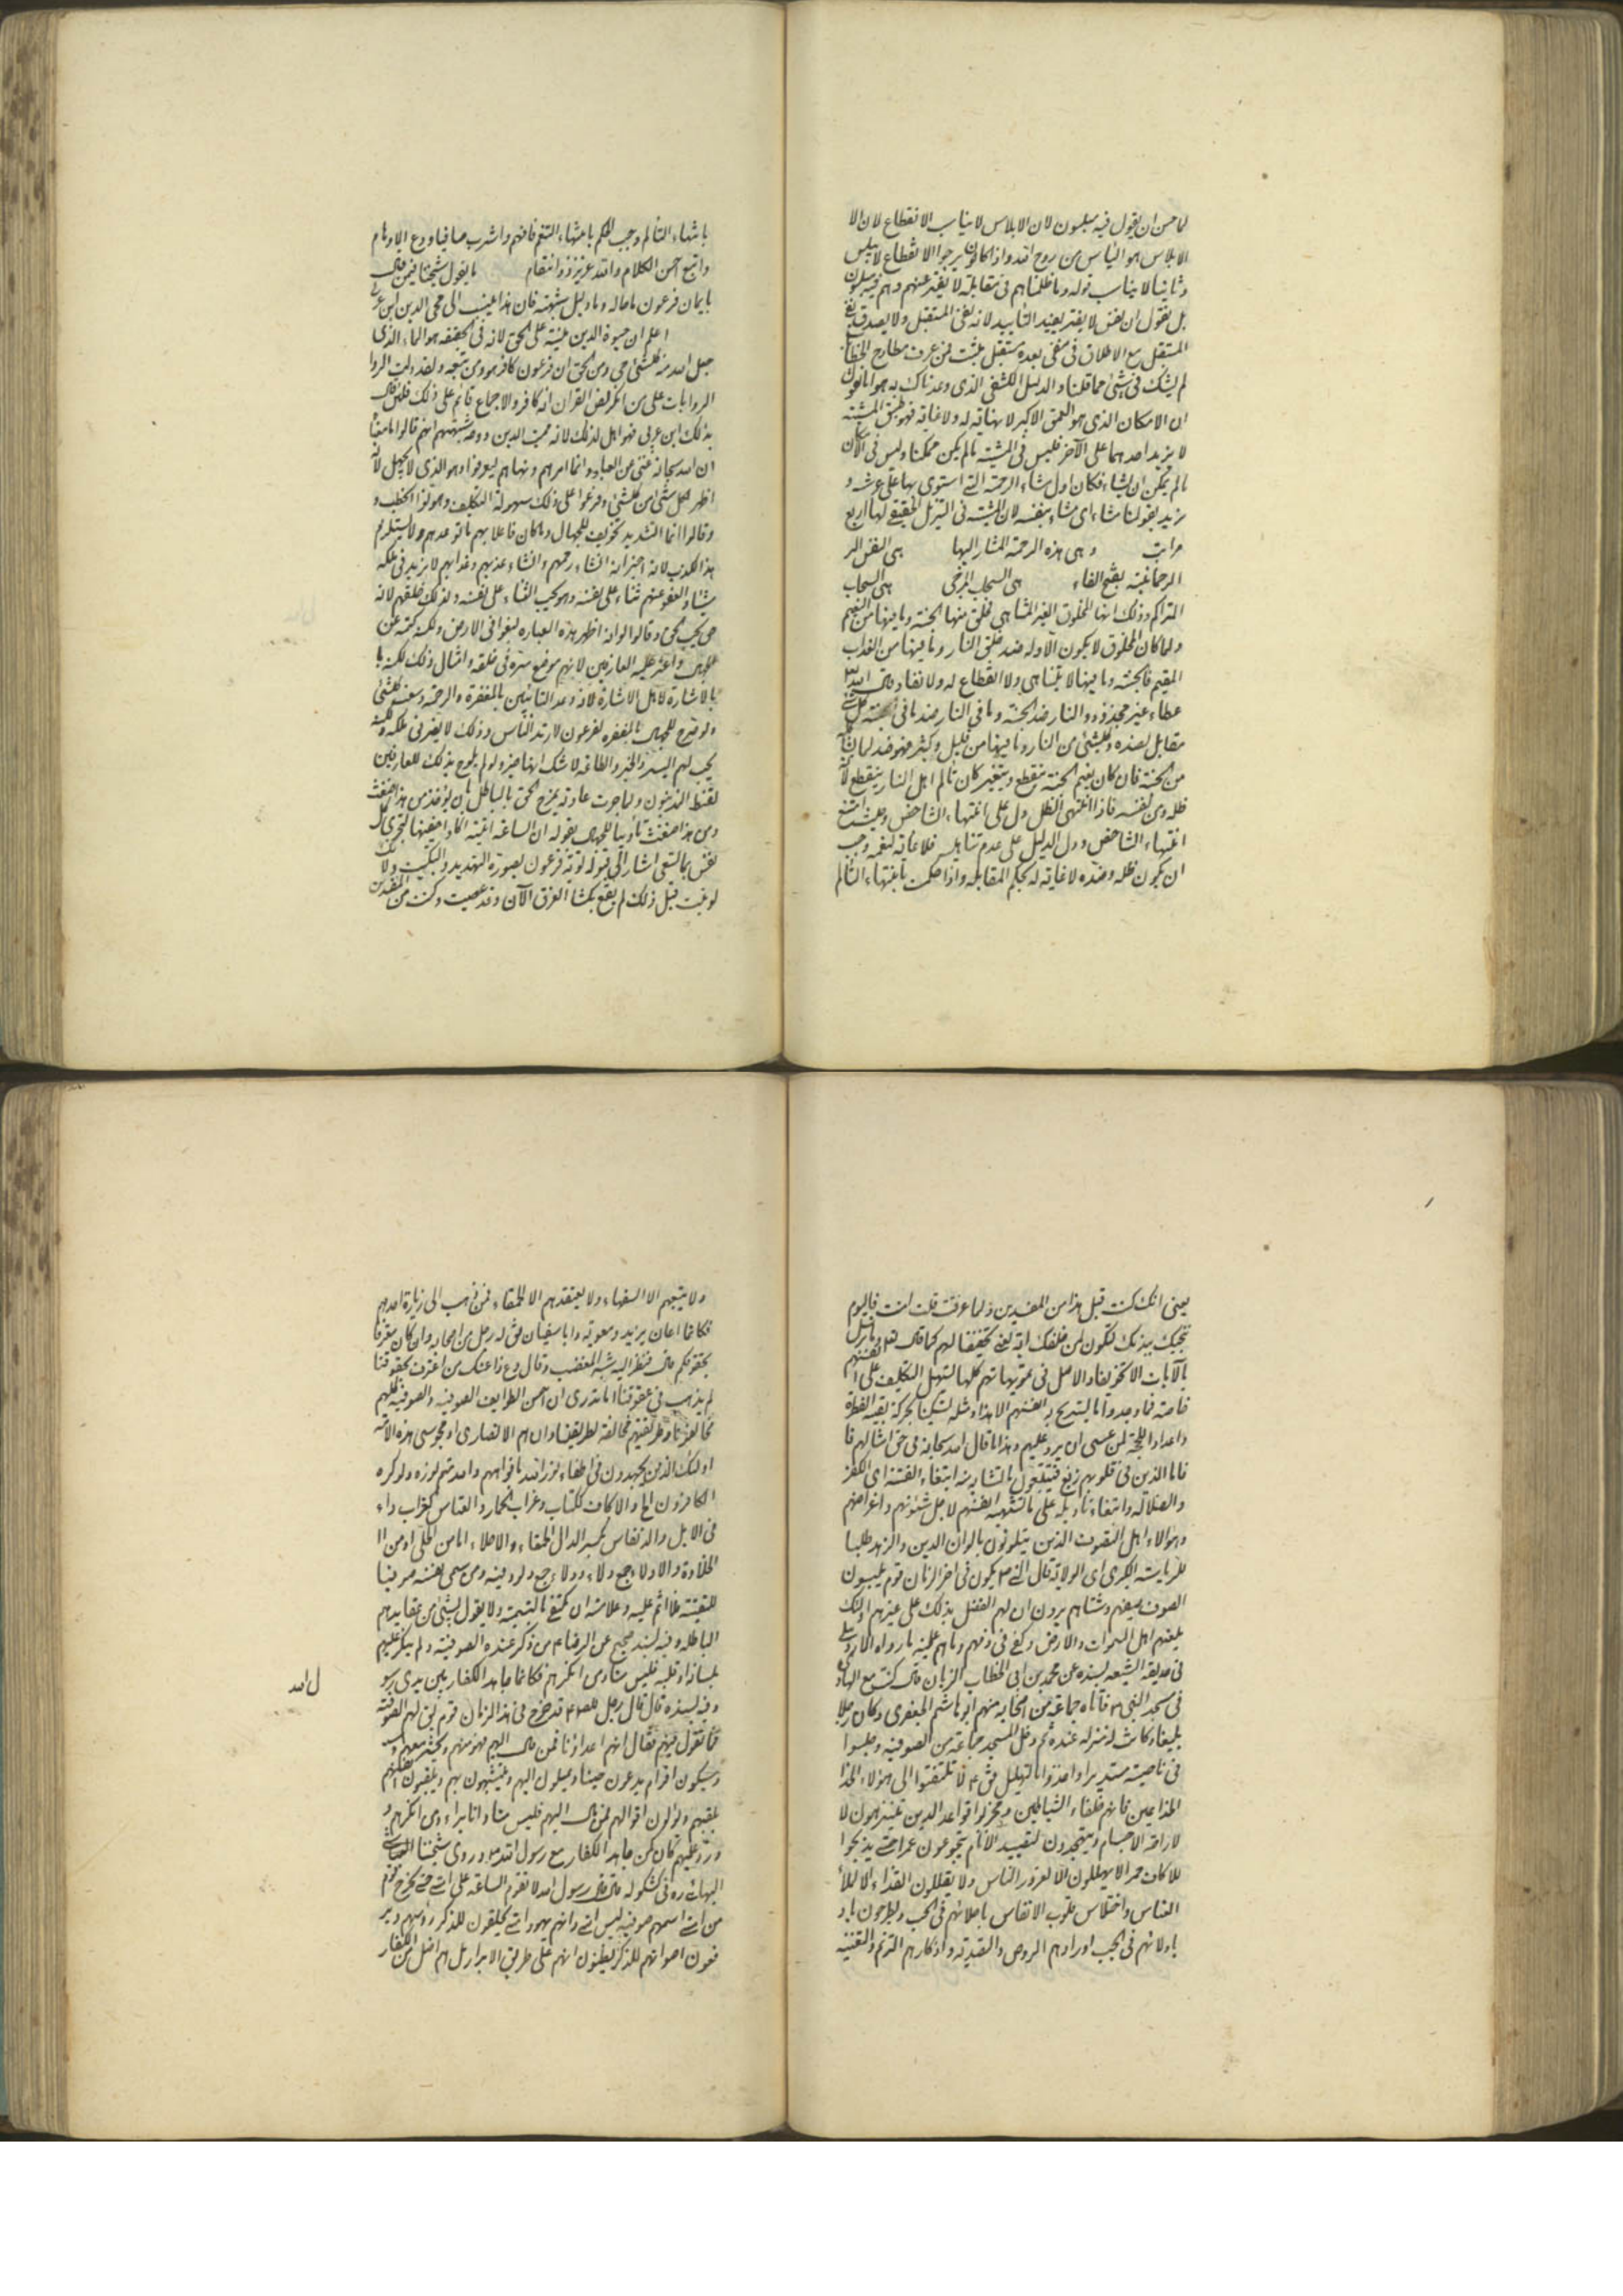 لما حسن ان يقول فيه مبلسون لان الابلاس لا يناسب الانقطاع لان الا
الابلاس هو اليأس من روح الله واذا كانوا يرجوا الانقطاع لا يبلس
وثانيا لا يناسب قوله وما ظلمناهم في مقابلة لا يفتر عنهم وهم فيه مبلسون
بل نقول ان نفي لا يفتر يفيد التأبيد لانه نفي المستقبل ولا يصدق نفي
المستقبل مع الاطلاق في نفي بعده مستقبل يثبت فمن عرف مطارح الخطاب
لم يشك في شئ مما قلنا والدليل الكشفي الذي وعدناك به هو ما نقول
ان الامكان الذي هو العمق الاكبر لا نهاية له ولا غاية فهو طبق المشية
لا يزيد احدهما على الآخر فليس في المشية ما لم يكن ممكنا وليس في الامكان
ما لم يمكن ان يشاء فكان اول ما شاء الرحمة التي استوى بها على عرشه و
نريد بقولنا شاء اي شاء بنفسه لان المشية في التنزل الحقيقي لها اربع
مراتب وهي هذه الرحمة المشار اليها هي النفس الر
الرحماني بفتح الفاء هي السحاب المزجى هي السحاب
المتراكم وذلك انها المخلوق الغير المتناهي فخلق منها الجنة وما فيها من النعيم
ولما كان المخلوق لا يكون الا وله ضد خلق النار وما فيها من العذاب
المقيم فالجنة وما فيها لا يتناهى ولا انقطاع له ولا نفاد قال الله تعالى
عطاء غير مجذوذ والنار ضد الجنة وما في النار ضد ما في الجنة كل شئ
مقابل بضده وكل شئ من النار وما فيها من قليل وكثير فهو ضد لما قابله
من الجنة فان كان نعيم الجنة ينقطع ويتغير كان تألم اهل النار ينقطع لانه
ظله ومن نفسه فاذا انتهى الظل دل على انتهاء الشاخص وحيث امتنع
انتهاء الشاخص ودل الدليل على عدم تناهيه فلا غاية لنعيمه وجب
ان يكون ظله وضده لا غاية له بحكم المقابلة واذا حكمت بانتهاء التألم
بانتهاء التألم وجب الحكم بانتهاء التنعم فافهم واشرب صافيا ودع الاوهام
واتبع احسن الكلام والله عزيز ذو انتقام ما يقول شيخنا فيمن قال
بايمان فرعون ما حاله وما دليل شبهته فان هذا ينسب الى محي الدين ابن عربي
اعلم ان حيوة الدين مبنية على الحق لانه في الحقيقة هو الماء الذي
جعل الله منه كل شئ حي ومن الحق ان فرعون كافر هو ومن تبعه ولقد دلت الروا
الروايات على من انكر نص القران انه كافر والاجماع قائم على ذلك فمن قال
بذلك ابن عربي فهو اهل لذلك لانه مميت الدين ووجه شبهتهم انهم قالوا ما معناه
ان الله سبحانه غني عن العباد وانما امرهم ونهاهم ليعرفوا وهو الذي لا يجهل لانه
اظهر لكل شئ من كل شئ وفرعوا على ذلك سهولة التكليف وهونوا الخطب و
وقالوا انما التشديد تخويف للجهال وما كان فاعلا بهم ما توعدهم ولا يستلزم
هذا الكذب لانه اخبر انه ان شاء رحمهم وان شاء عذبهم وعذابهم لا يزيد في ملكه
شيئا والعفو عنهم ثناء على نفسه وهو يحب الثناء على نفسه ولذلك خلقهم لانه
حي يحب الحي وقالوا وانه اظهر هذه العبارة ليغوا في الارض ولكنه كتمه عن
الجهال واعثر عليه العارفين لانهم موضع سره في خلقه وامثال ذلك لكنه با
بالاشارة لاهل الاشارة لانه وعد التائبين بالمغفرة والرحمة وسعت كل شئ
ولو صرح للجهال بالمغفرة لفرعون لارتد الناس وذلك لا يضر في ملكه ولكنه
يحب لهم اليسر والخير والطاعة لا شك انها خير ولو لم يلوح بذلك للعارفين
لقنط المذنبون ولما جرت عادته بمزج الحق بالباطل بان يؤخذ من هذا ضغث
ومن هذا ضغث تأديبا للجهال بقوله ان الساعة اتية اكاد اخفيها لتجزى كل
نفس بما تسعى اشار الى قبوله توبة فرعون بصورة التهديد والتبكيت ولانك
لو تبت قبل ذلك لم يقع بك هذا الغرق الآن وقد عصيت وكنت من المفسدين
يعني انك كنت قبل هذا من المفسدين ولما عرفت قلت امنت فاليوم
ننجيك ببدنك لتكون لمن خلفك اية يعني تخفيفا لهم كما قال تعالى وما نرسل
بالآيات الا تخويفا والاصل في تمويهاتهم كلها لتسهيل التكليف على انفسهم
خاصة فما وجدوا ما يستريح به انفسهم الا هذا ومثله تسكينا لحركة بقية الفطرة
واعدادا للحجة لمن عسى ان يرد عليهم وهذا ما قال الله سبحانه في حق امثالهم فا
فاما الذين في قلوبهم زيغ فيتبعون ما تشابه منه ابتغاء الفتنة اي الكفر
والضلالة وابتغاء تاويله على ما تشتهيه انفسهم لاجل شئونهم واغراضهم
وهؤلاء اهل التصوف الذين يتلونون بالوان الدين والزهد طلبا
للرياسة الكبرى اي الولاية قال النبي ص يكون في اخر الزمان قوم يلبسون
الصوف صيفهم وشتاهم يرون ان لهم الفضل بذلك على غيرهم اولئك
يلعنهم اهل السموات والارض وكفى في ذمهم وما هم عليه ما رواه الاردبيلي
في حديقة الشيعة بسنده عن محمد بن ابي الخطاب الزيات قال كنت مع الهادي
في مسجد النبي ص فأتاه جماعة من اصحابه منهم ابو هاشم الجعفري وكان رجلا
بليغا وكانت له منزلة عنده ثم دخل المسجد جماعة من الصوفية وجلسوا
في ناحيته مستديرا واخذوا بالتهليل فقال ع لا تلتفتوا الى هؤلاء الخدا
الخداعين فانهم خلفاء الشياطين ومخربوا قواعد الدين يتزهدون لا
لاراحة الاجسام ويتهجدون لتقييد الأنام يتجوعون عمرا حتى يذبحوا
للاكاف حمرا لا يهللون الا لغرور الناس ولا يقللون الغذاء الا لملأ
العساس واختلاس قلوب الانقاس باملائهم في الحب ويطرحون باد
بادلائهم في الجب اورادهم الرقص والتصدية واذكارهم الترنم والتغنية
ولا يتبعهم الا السفهاء ولا يعتقدهم الا الحمقاء فمن ذهب الى زيارة احدهم
فكانما اعان يزيد ومعوية وابا سفيان فقال له رجل من اصحابه وان كان معترفا
بحقوقكم قال فنظر اليه شبه المغضب وقال دع ذا عنك من اعترف بحقوقنا
لم يذهب في عقوقنا اما تدري ان اخس الطوايف الصوفية والصوفية كلهم
مخالفونا وطريقتهم مخالفة لطريقتنا وان هم الا نصارى او مجوسي هذه الامة
اولئك الذين يجهدون في اطفاء نور الله بافواههم والله متم نوره ولو كره
الكافرون والاكاف ككتاب وغراب الحمار والعساس كغراب داء
في الابل والدنفاس بكسر الدال الحمقاء والاملاء اما من الملى او من الا
الملاوة والادلاء جمع دلاء ودلاء جمع دلو وفيه ومن سمى نفسه صوفيا
للتقية فلا اثم عليه وعلامته ان يكتفي بالتسمية ولا يقول بشئ من عقايدهم
الباطلة وفيه بسند صحيح عن الرضا ع من ذكر عنده الصوفية ولم ينكر عليهم
بلسانه او قلبه فليس منا ومن انكرهم فكانما جاهد الكفار بين يدي رسو
ل الله
وفيه بسنده قال قال رجل للصادق ع قد خرج في هذا الزمان قوم يقال لهم الصوفية
فما تقول فيهم فقال انهم اعداؤنا فمن مال اليهم فهو منهم ويحشر معهم و
وسيكون اقوام يدعون حبنا ويميلون اليهم ويتشبهون بهم ويلقبون انفسهم
بلقبهم ويؤلون اقوالهم فمن مال اليهم فليس منا وانا منه براء ومن انكرهم و
ورد عليهم كان كمن جاهد الكفار مع رسول الله ص وروى شيخنا البهائي
البهائي ره في كشكوله قال قال رسول الله لا تقوم الساعة على امتي حتى يخرج قوم
من امتي اسمهم صوفية ليس امتي وانهم يهود امتي يحلقون للذكر رؤسهم وير
فعون اصواتهم للذكر يظنون انهم على طريق الابرار بل هم اضل من الكفار